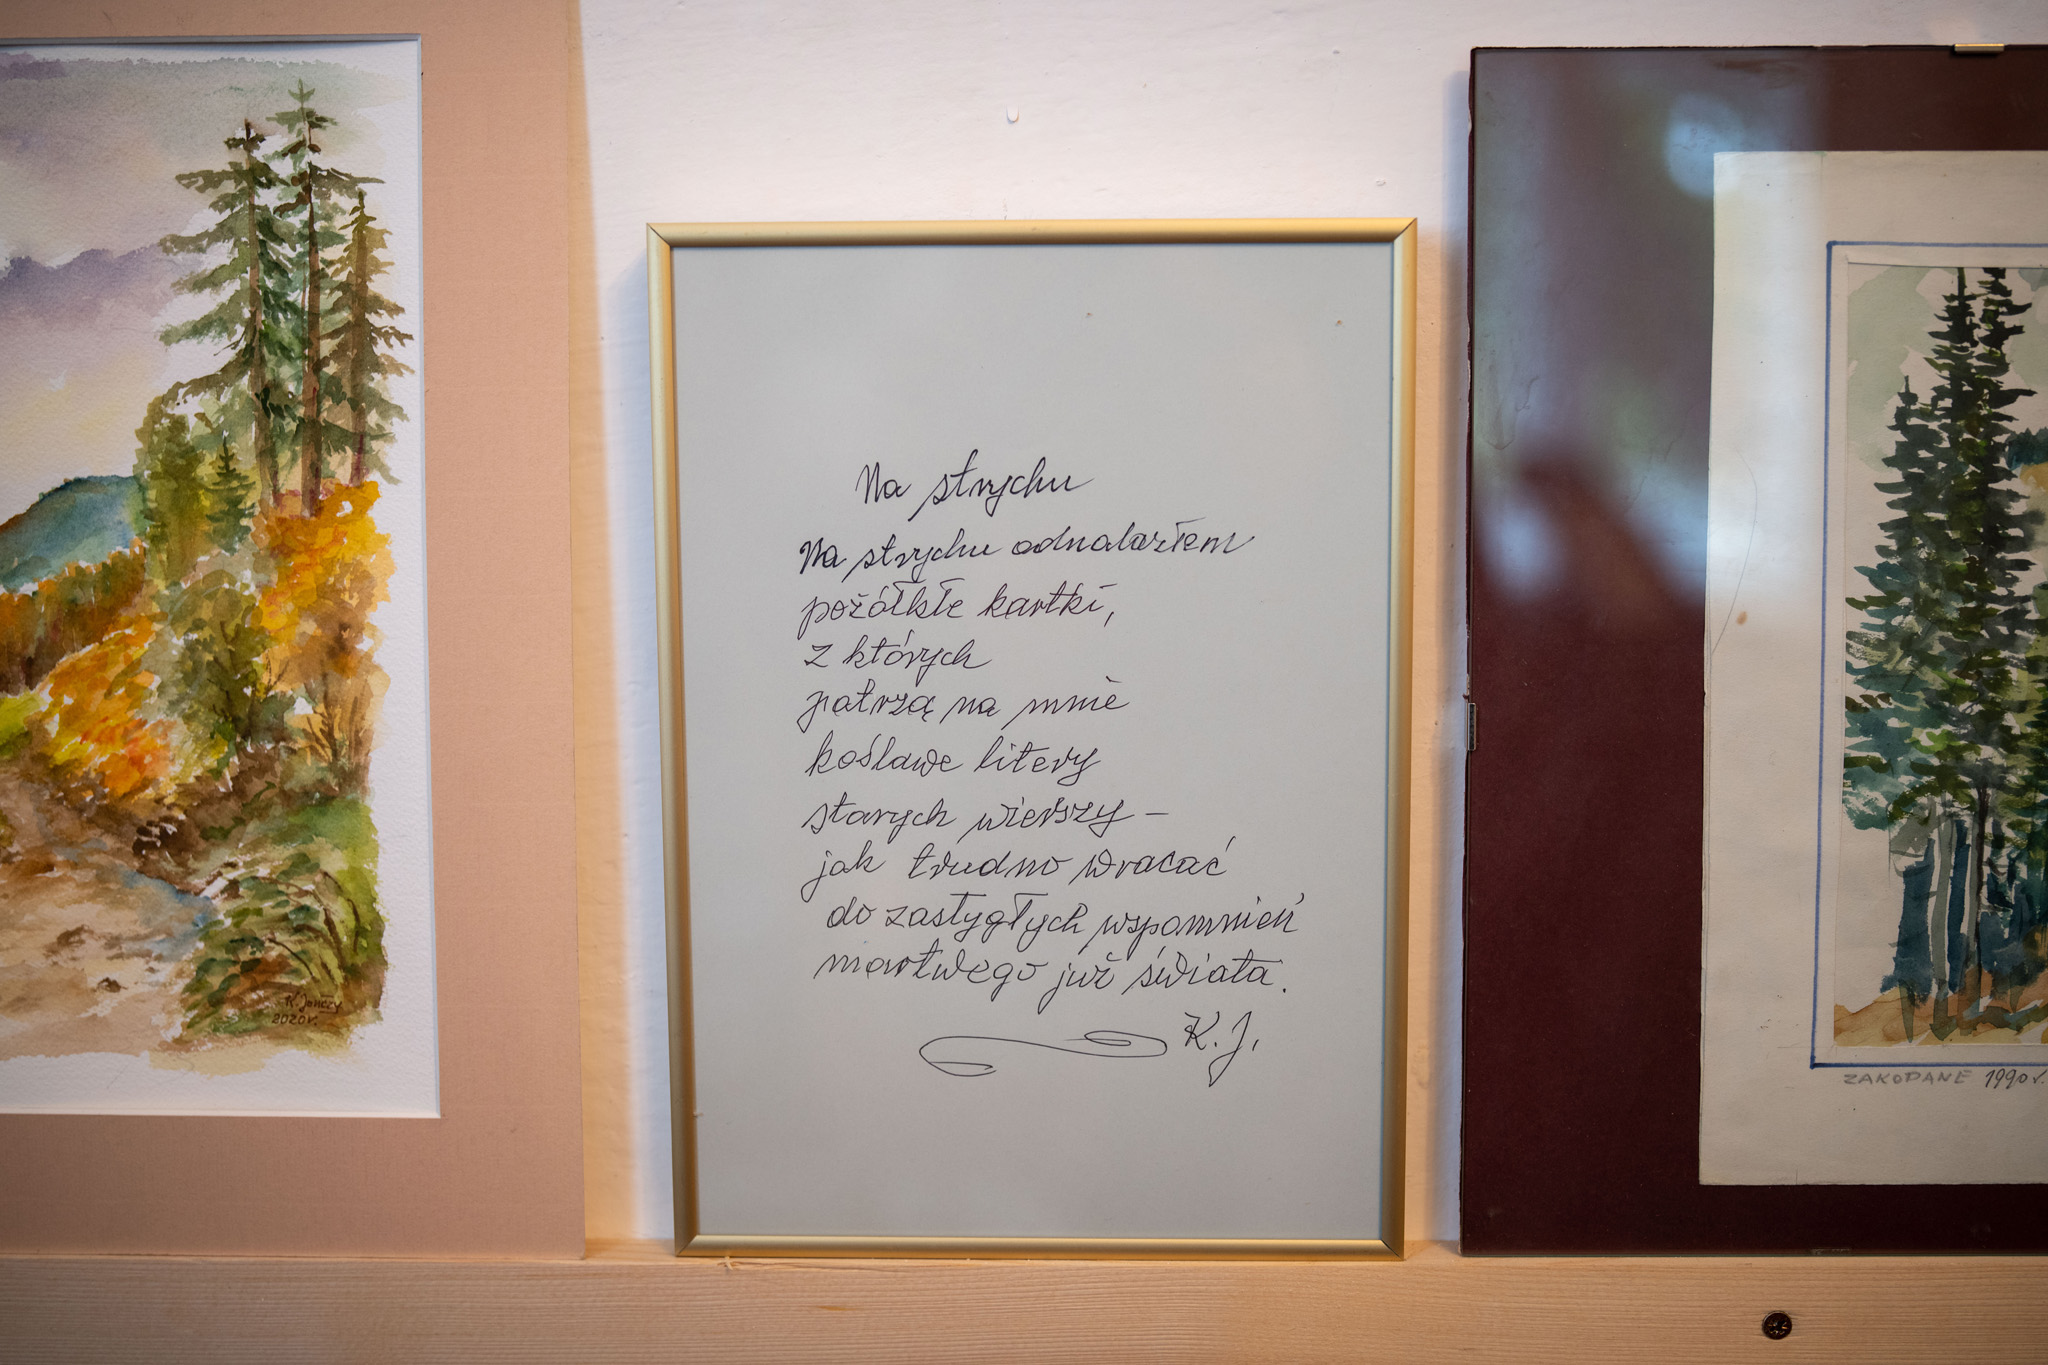 K. Jończy
2020r.
Na strychu
Na strychu odnalazłem
pożółkłe kartki,
z których
patrzą na mnie
koślawe litery
starych wierszy –
jak trudno wracać
do zastygłych wspomnień
martwego już świata.
K. J.
ZAKOPANE 1990r.